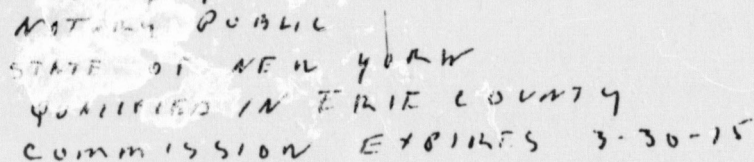 NOTARY PUBLIC
STATE OF NEW YORK
QUALIFIED IN ERIE COUNTY
COMMISSION EXPIRES 3-30-15